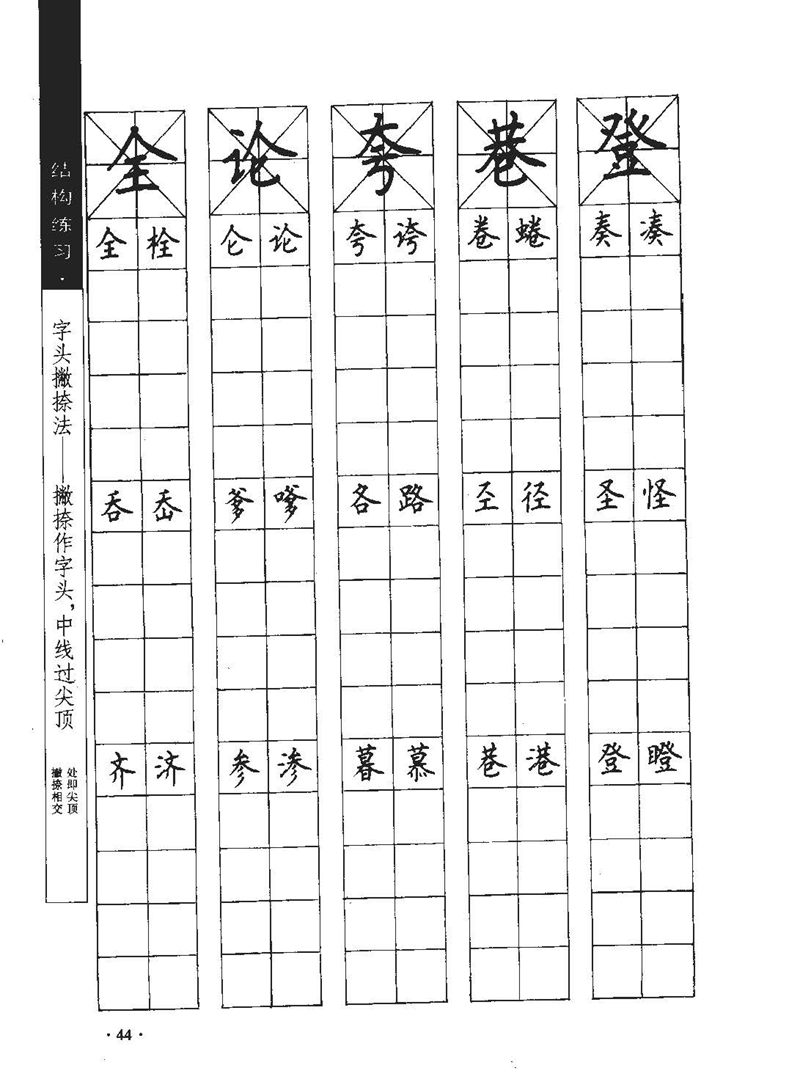 结构练习·
字头撇捺法——撇捺作字头，中线过尖顶
撇捺相交
处即尖顶
全 论 夸 巷 登
全 栓 仑 论 夸 诿 卷 蜷 奏 凑
吞 岙 爹 嗲 各 路 圣 径 圣 怪
齐 济 参 渗 暮 慕 巷 港 登 瞪
·44·